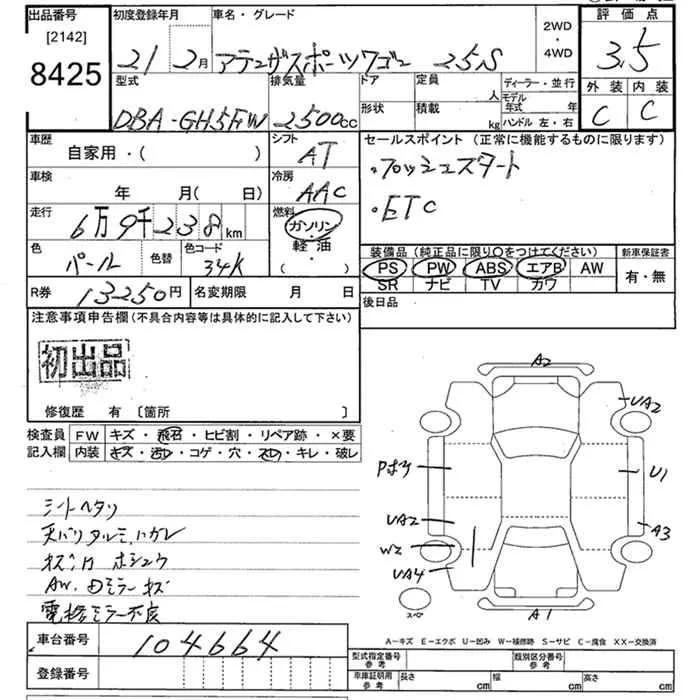 出品番号 初度登録年月 車名・グレード 2WD・4WD 評価点
[2142]
8425 21 2月 アテンザスポーツワゴン 25S 3.5
型式 排気量 ドア 定員 人 ディーラー・並行 外装 内装
DBA-GH5FW 2500cc 形状 積載 kg モデル年式 年 ハンドル 左・右 C C
車歴 シフト セールスポイント (正常に機能するものに限ります)
自家用・( ) AT ・プッシュスタート
車検 冷房
年 月(日) AAC ・ETC
走行 燃料
6万9千238km ガソリン・軽油・( )
色 色替 色コード 装備品(純正品に限り○をつけてください) 新車保証書
パール 34K PS PW ABS エアB AW 有・無
SR ナビ TV カワ
R券 13250円 名変期限 月 日 後日品
注意事項申告欄(不具合内容等は具体的に記入して下さい)
初出品
修復歴 有 [箇所 ]
検査員記入欄 FW キズ・飛石・ヒビ割・リペア跡・×要
内装 キズ・汚レ・コゲ・穴・スレ・キレ・破レ
シートヘタリ
天バリタルミ、ハガレ
キズ
AW.
電格ミラー不良
A2
UA2
U1
A3
UA2
W2
UA4
スペア
A1
A-キズ E-エクボ U-凹み W-補修跡 S-サビ C-腐食 XX-交換済
車台番号 104664
登録番号
型式指定番号 参考 類別区分番号 参考
車庫証明用 参考 長さ cm 幅 cm 高さ cm